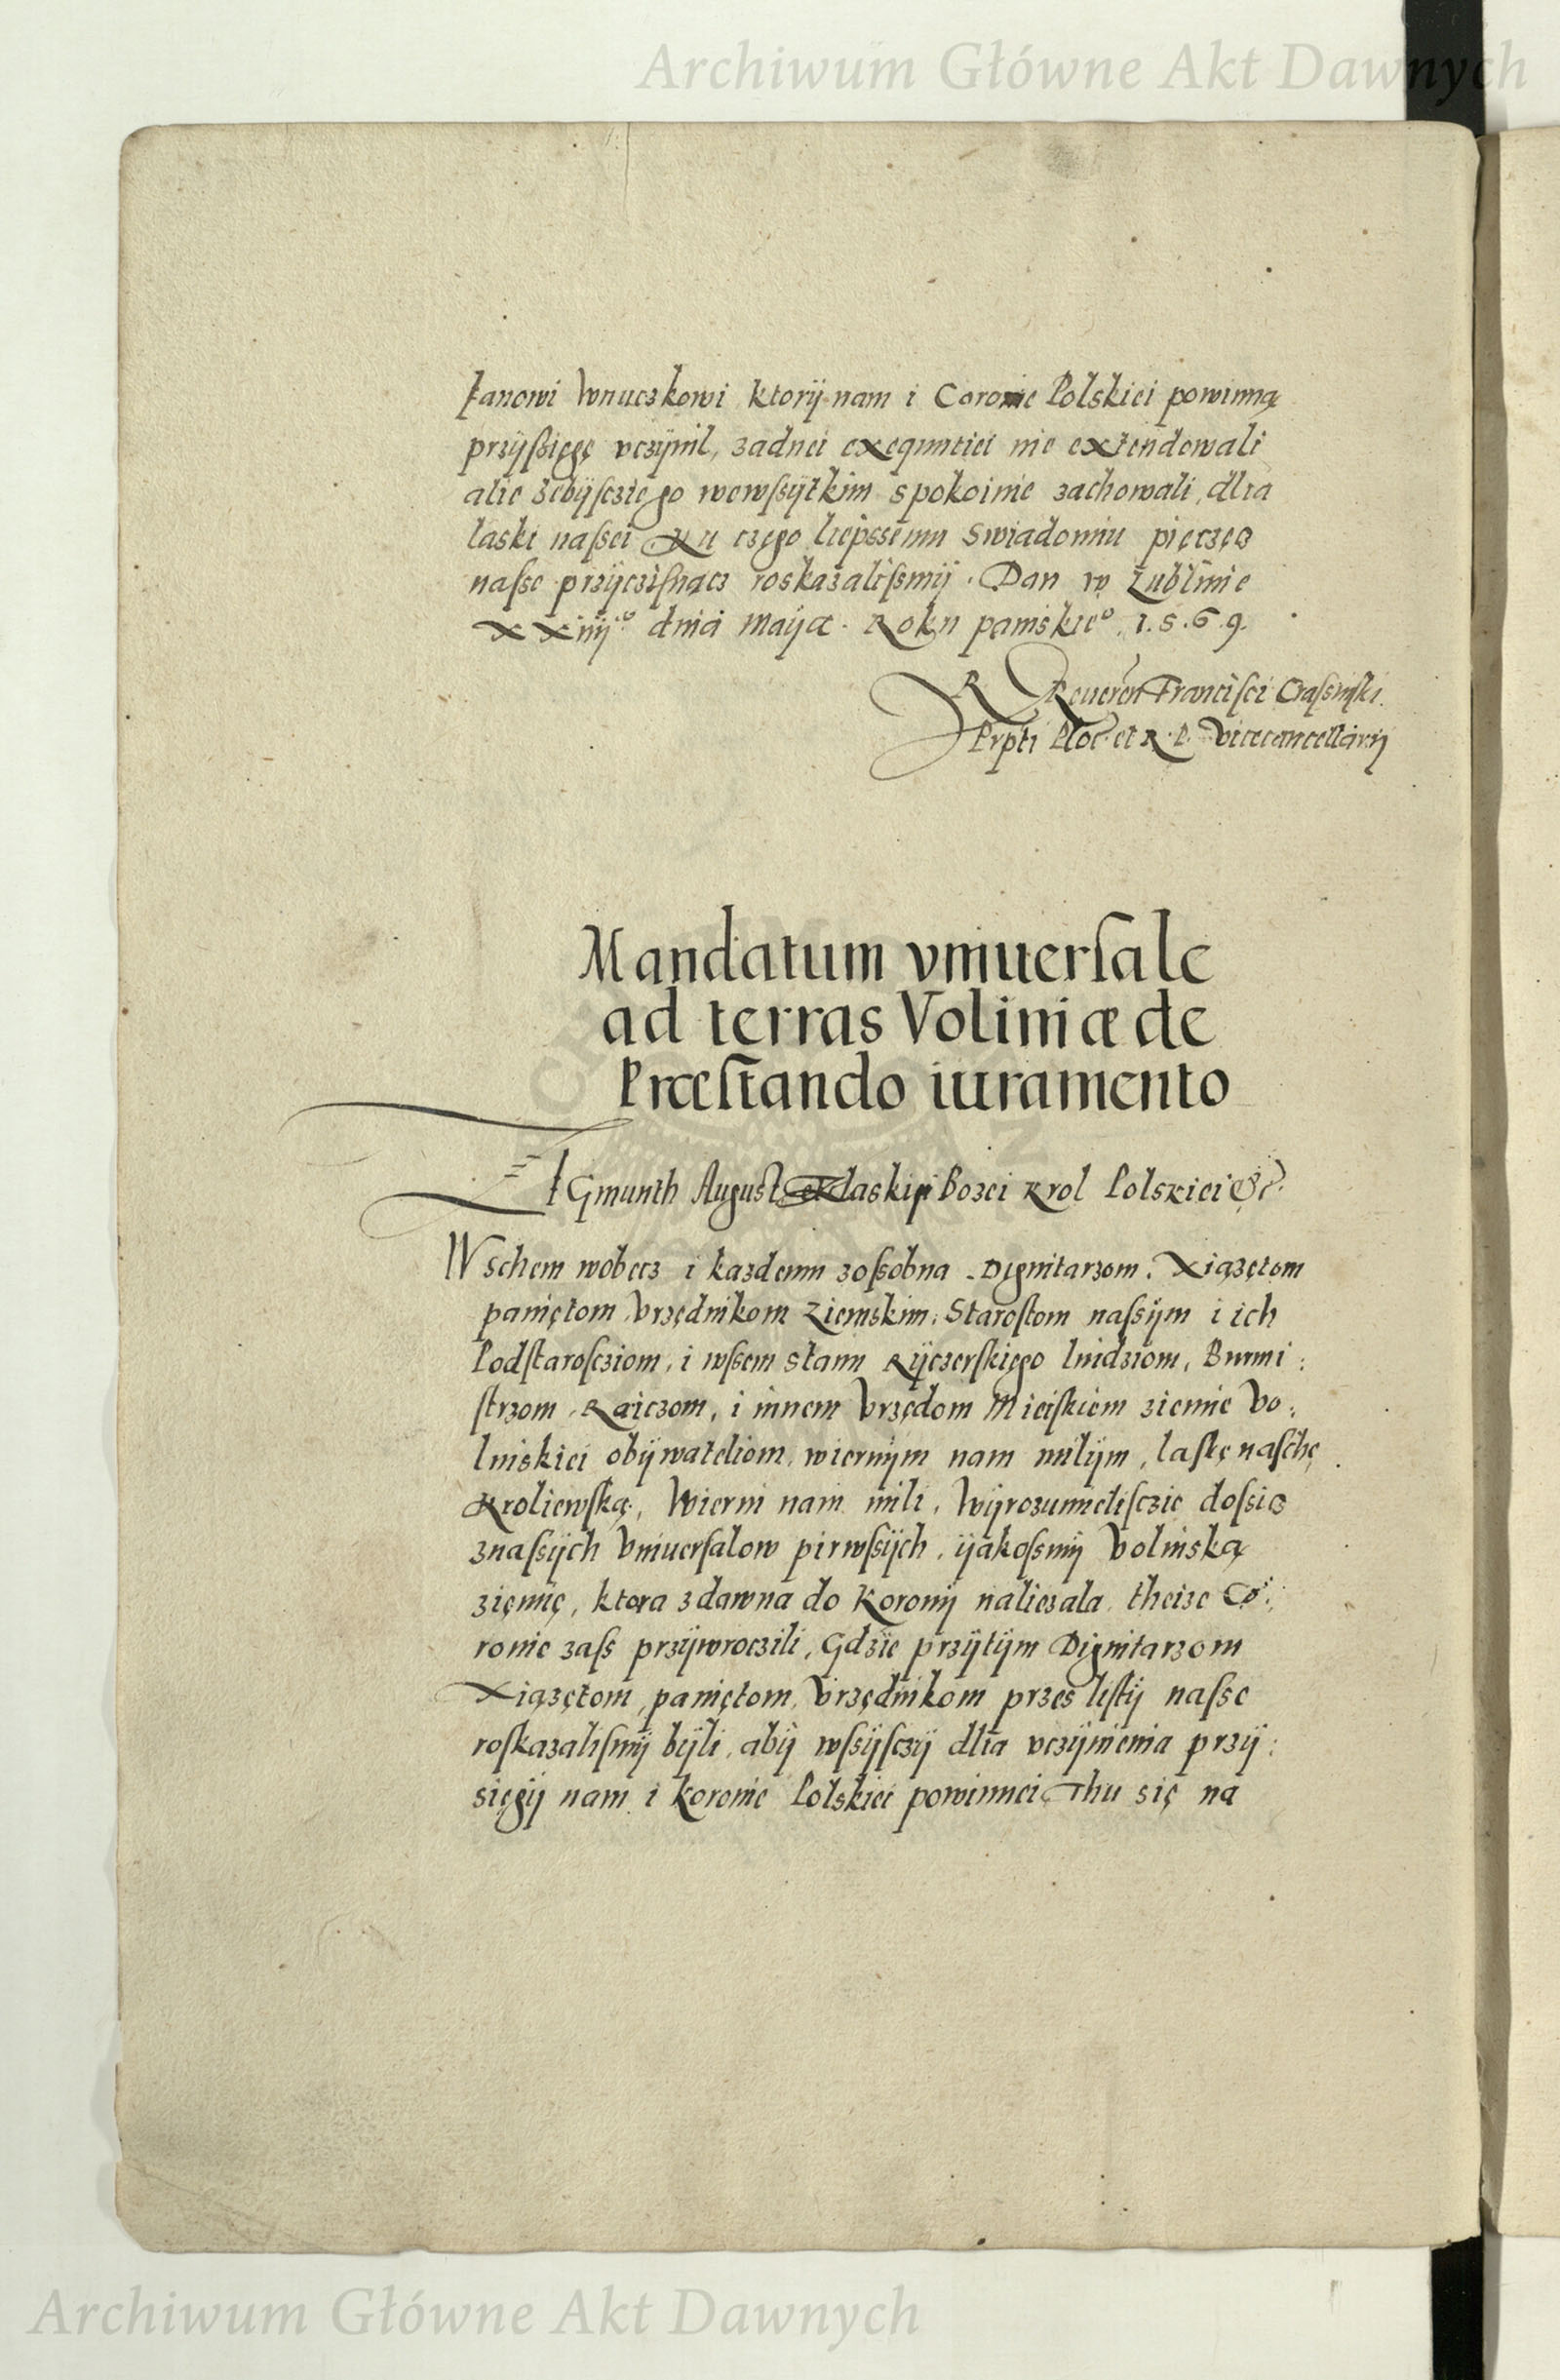 Archiwum Główne Akt Dawnych
Ianowi Wnuczkowi ktorÿ nam i Coronie Polskiei powinną
przÿßięgę vczÿnil, zadnei exequutiei nie extendowali
alie żebÿſcziego wewſsÿtkim spokoinie zachowali, dlia
laski naſsei. Ku czego liepssemu Swiadomiu pięczęcz
naſse przÿcziſnącz roskazaliſsmÿ. Dan w Lublinie
XXiiijº dnia Maÿa. Roku panskieº. 1.5.6.9.
R Reueren Franciſci Craſsinſki
Prpti Ploc et R. P. Vicecancellarÿ
Mandatum vniuerſale
ad terras Voliniæ de
Præſtando iuramento
ZIGmunth August laskÿ Bozei Krol Polskiei &c.
Wschem wobecz i kazdemu zoſsobna Dignitarzom. Xiązętom
panięтom Vrzędnikom Ziemskim, Staroſtom naſsÿm i ich
Podſtaroſcziom, i wſsem stanu Rÿczerſkięgo luidziom, Burmi:
ſtrzom, Raiczom, i innem Vrzędom Mieiſkiem ziemie Vo:
lniskiei obÿwateliom, wiernÿm nam milÿm, laſkę naſchę
Kroliewſką, Wierni nam mili, Wÿrozumieliſczie doſsicz
znaſsÿch Vniuerſalow pirwſsÿch, ÿakoſsmÿ Volinską
zięmię, ktora zdawna do Koronÿ naliezala, theize Co:
ronie zaſs przÿwroczili, Gdzie przÿtÿm Dignitarzom
Xiązętom, paniętom, Vrzędnikom przes liſtÿ naſse
roſkazaliſmÿ bÿli, abÿ wſsÿſczÿ dlia vczÿnienia przÿ:
sięgÿ nam i koronie Polskiei powinnei Thu się na
Archiwum Główne Akt Dawnych